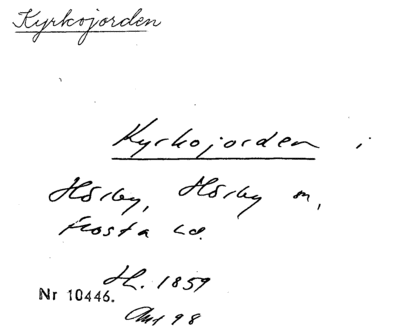 Kyrkojorden
Kyrkojorden i
Hörby, Hörby sn,
Frosta hd.
H. 1859
Nr 10446.
98